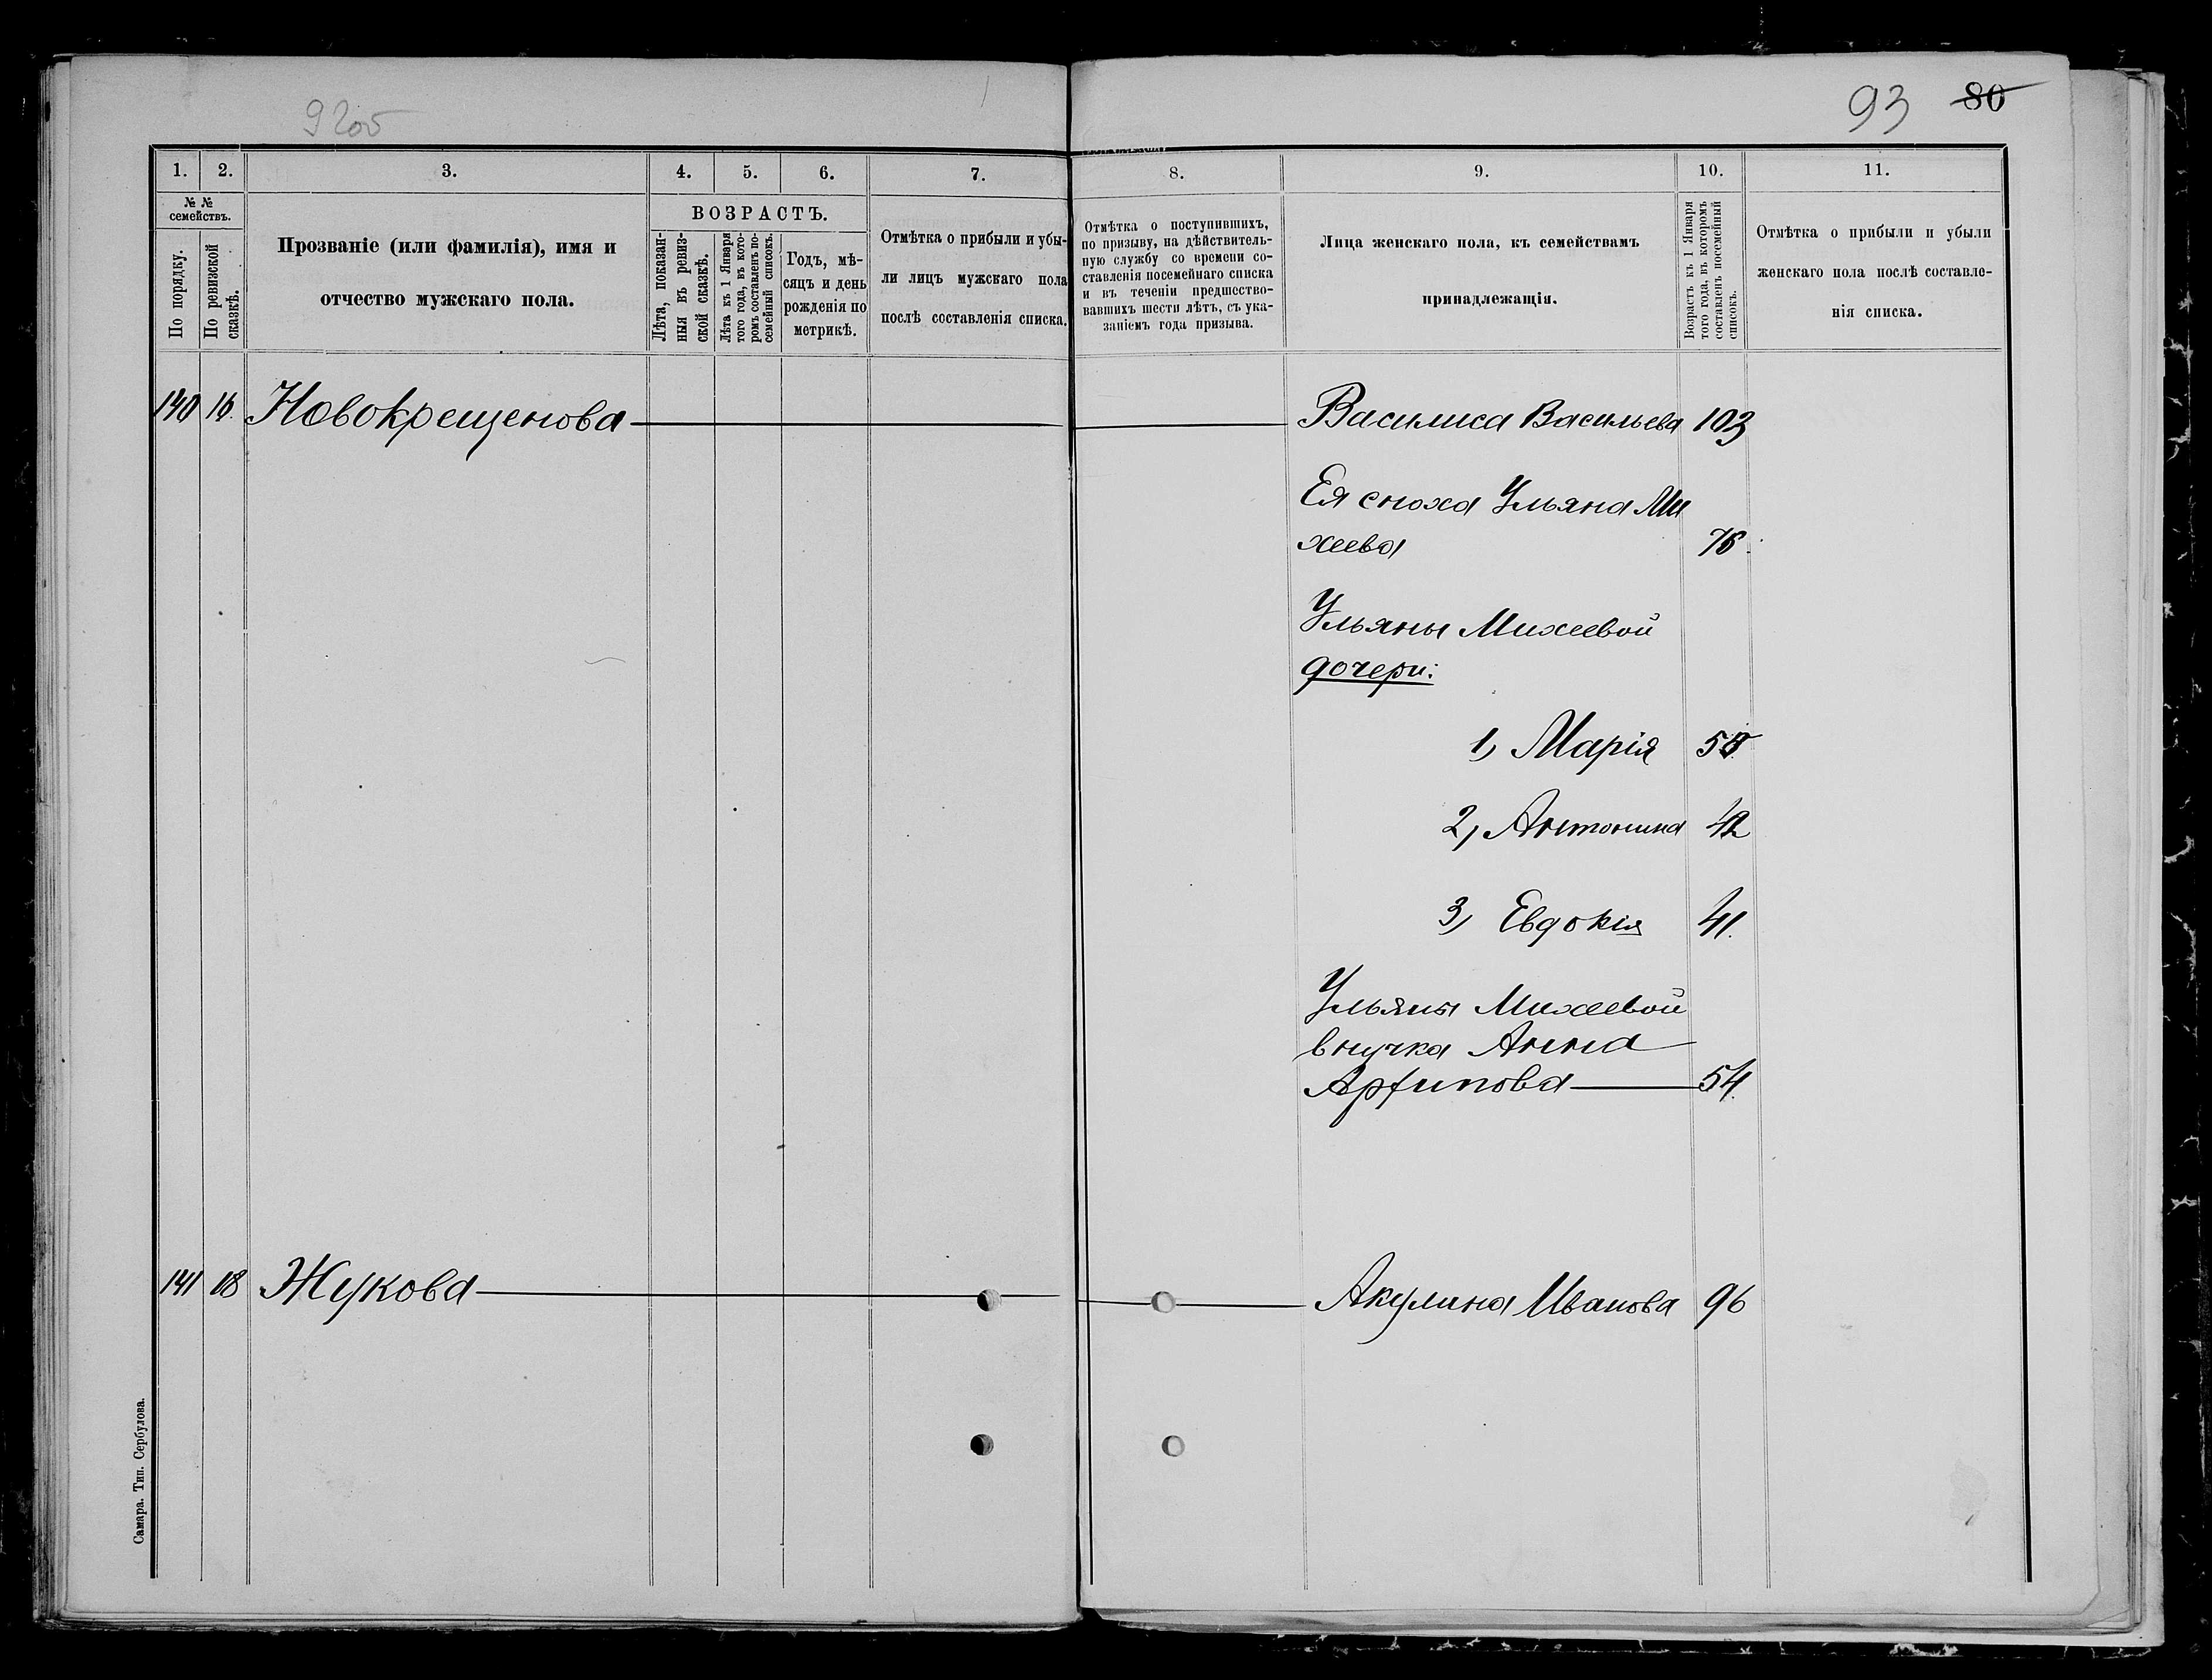 92об
93 80
1. 2. 3. 4. 5. 6. 7. 8. 9. 10. 11.
№ №
семействъ.
По порядку.
По ревизской
сказкѣ.
Прозваніе (или фамилія), имя и
отчество мужскаго пола.
ВОЗРАСТЪ.
Лѣта, показан-
ныя въ ревиз-
ской сказкѣ.
Лѣта къ 1 Января
того года, въ кото-
ромъ составленъ по-
семейный списокъ.
Годъ, мѣ-
сяцъ и день
рожденія по
метрикѣ.
Отмѣтка о прибыли и убы-
ли лицъ мужскаго пола
послѣ составленія списка.
Отмѣтка о поступившихъ,
по призыву, на дѣйствитель-
ную службу со времени со-
ставленія посемейнаго списка
и въ теченіи предшество-
вавшихъ шести лѣтъ, съ ука-
заніемъ года призыва.
Лица женскаго пола, къ семействамъ
принадлежащія.
Возрастъ къ 1 Января
того года, въ которомъ
составленъ посемейный
списокъ.
Отмѣтка о прибыли и убыли
женскаго пола послѣ составле-
нія списка.
140 16. Новокрещенова Василиса Васильева 103
Ея сноха Ульяна Ми
хеева
Ульяны Михеевой
дочери:
1) Марія
2) Антонина 42
3) Евдокія 41.
Ульяны Михеевой
внучка Анна
Архипова 54.
141 18 Жукова Акулина Иванова 96
Самара. Тип. Сербулова.